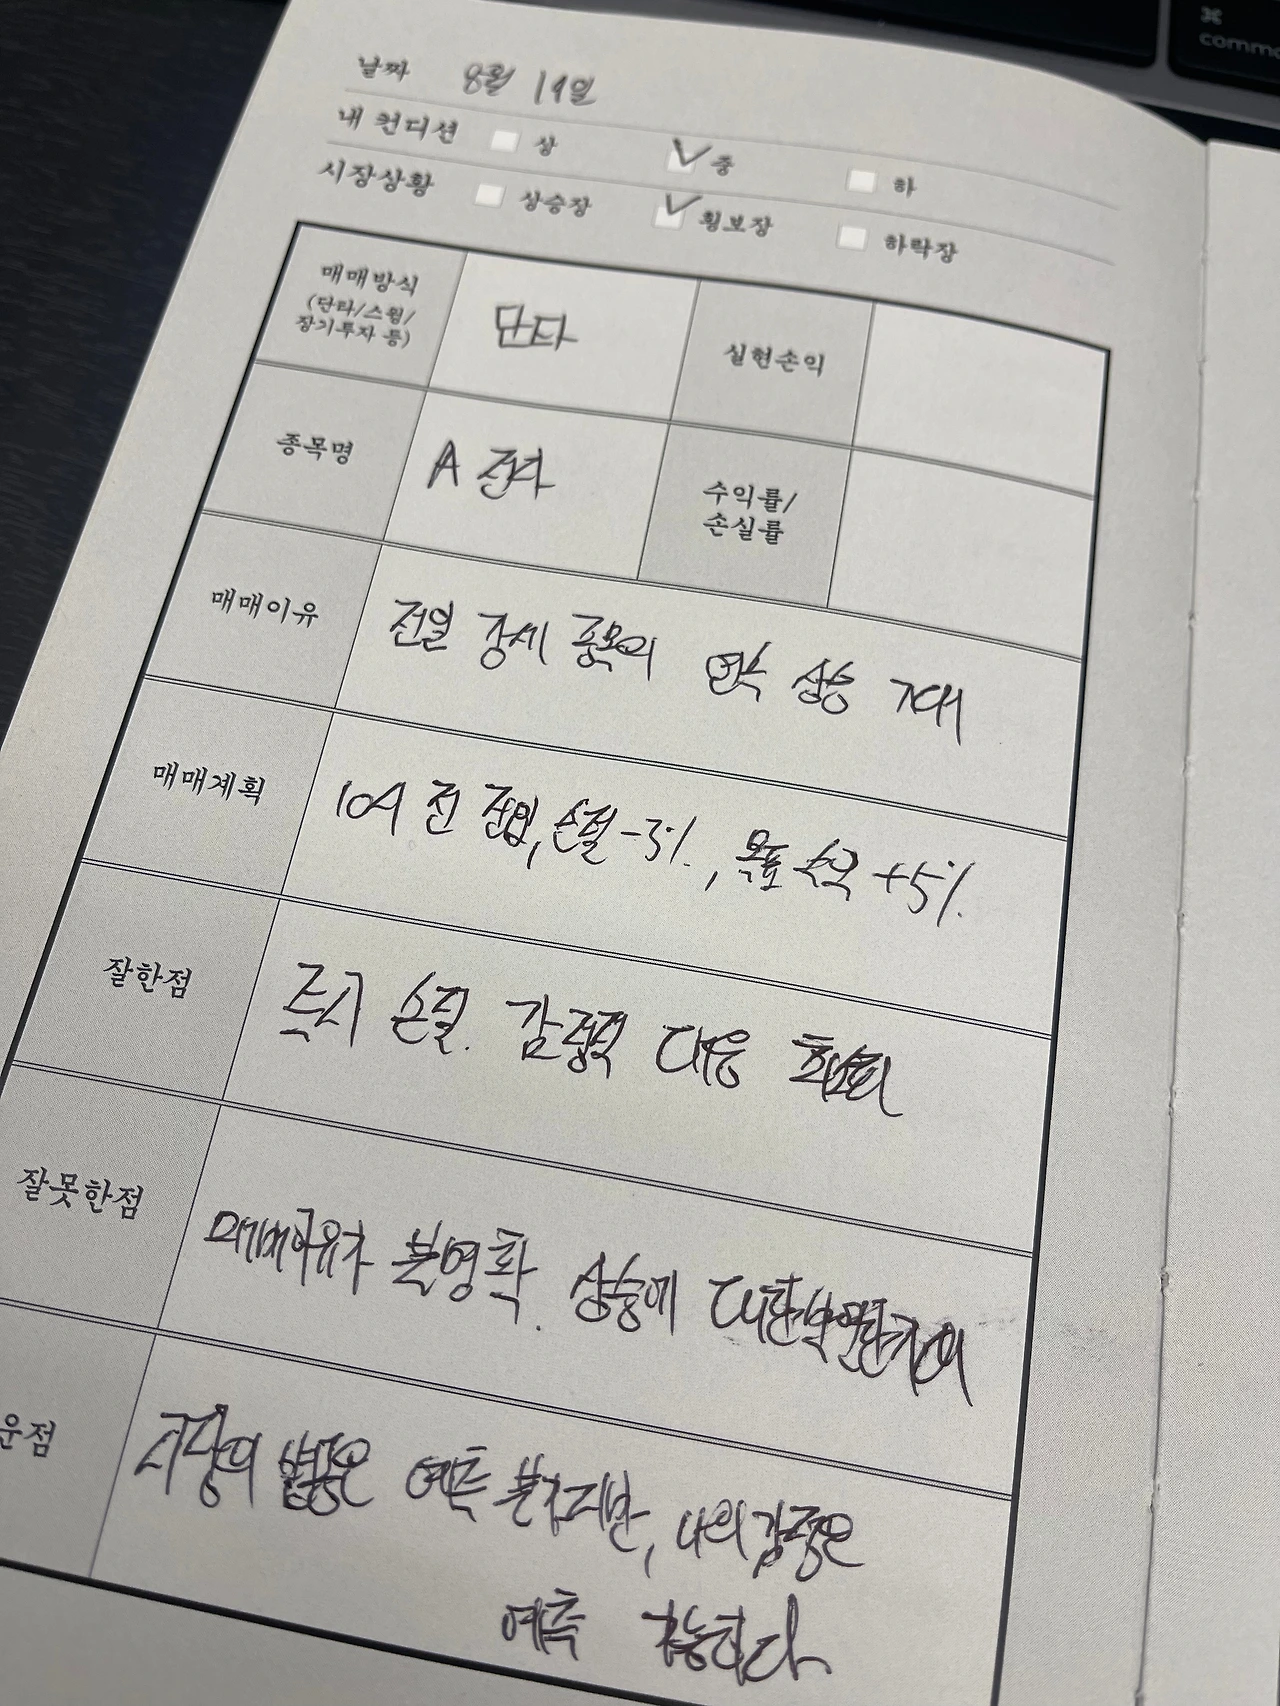 날짜 8월 19일
내 컨디션 상 중 하
시장상황 상승장 횡보장 하락장
매매방식
(단타/스윙/
장기투자 등)
단타
실현손익
종목명
A 전자
수익률/
손실률
매매이유
전일 강세 종목의 연속 상승 기대
매매계획
10시 전 진입, 손절 -3%, 목표 수익 +5%
잘한점
즉시 손절. 감정적 대응 최소화
잘못한점
매매이유가 불명확. 상승에 대한 막연한 기대
운점
시장의 은 예측 불가지만, 나의 감정은
예측 가능하다